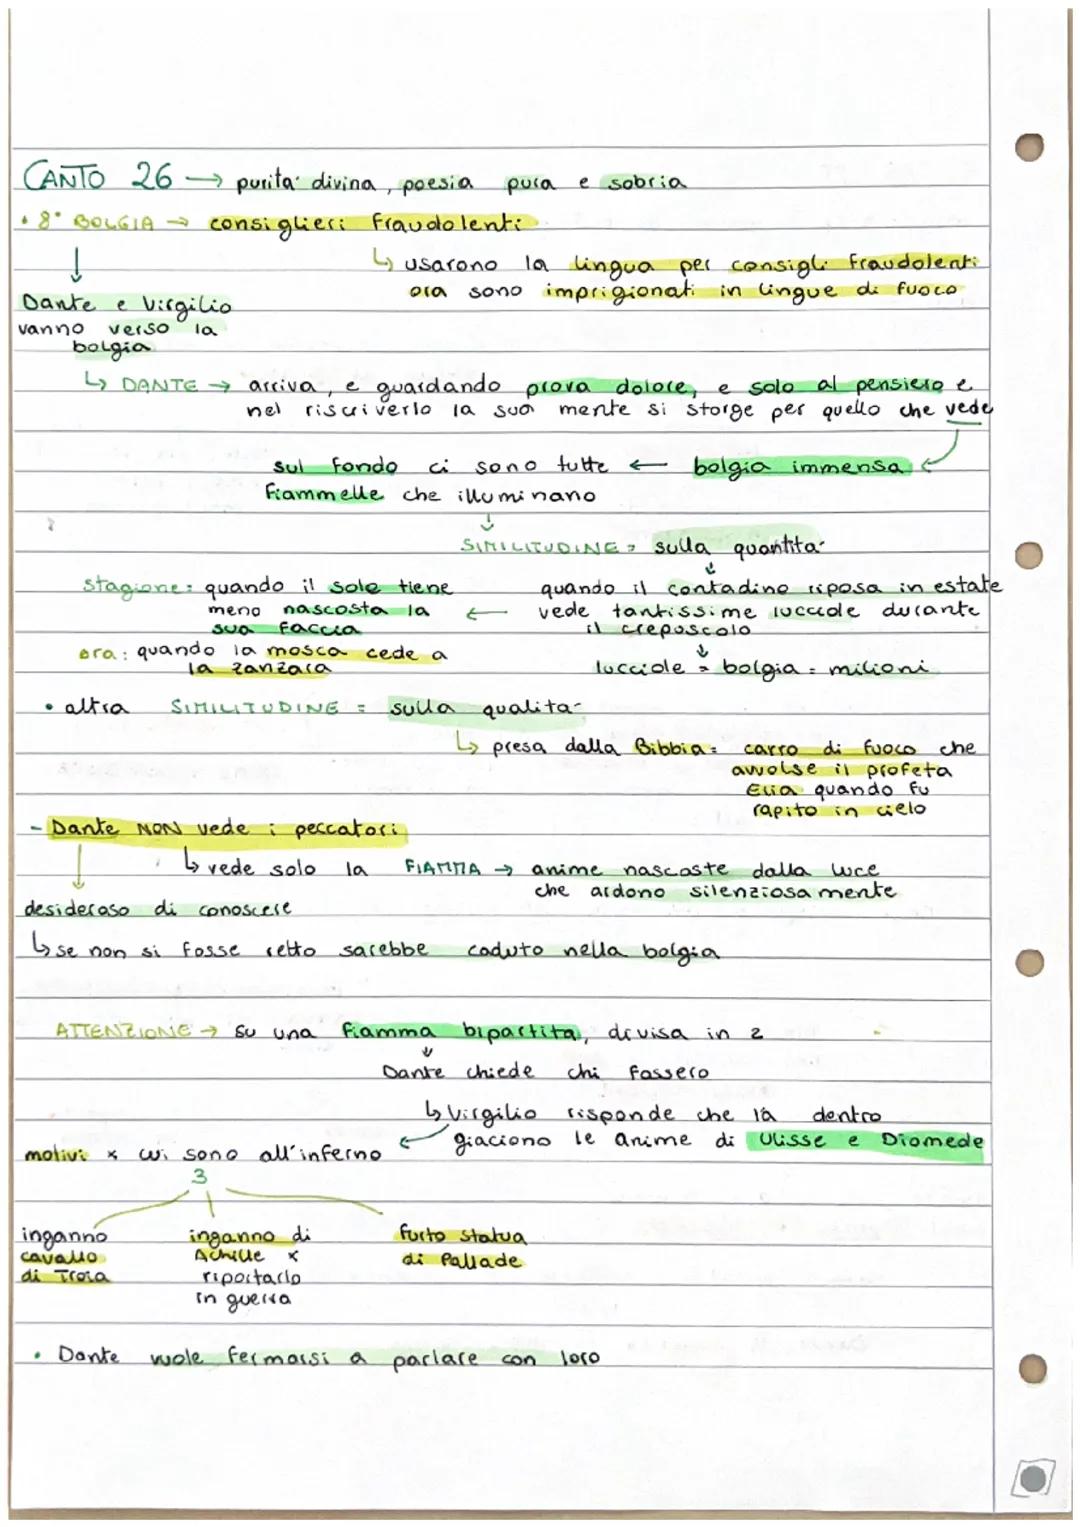 CANTO 26 → purità divina, poesia pura e sobria
• 8° BOLGIA → consiglieri fraudolenti
↳ usarono la lingua per consigli fraudolenti
ora sono imprigionati in lingue di fuoco
Dante e Virgilio
vanno verso la
bolgia
↳ DANTE → arriva, e guardando prova dolore, e solo al pensiero e
nel riscriverlo la sua mente si storge per quello che vede
sul fondo ci sono tutte ← bolgia immensa
fiammelle che illuminano
SIMILITUDINE = sulla quantità
stagione: quando il sole tiene
meno nascosta la
sua faccia
ora: quando la mosca cede a
la zanzara
quando il contadino riposa in estate
← vede tantissime lucciole durante
il crepuscolo
lucciole = bolgia = milioni
• altra SIMILITUDINE = sulla qualità
↳ presa dalla Bibbia = carro di fuoco che
avvolse il profeta
Elia quando fu
rapito in cielo
- Dante NON vede i peccatori
↳ vede solo la FIAMMA → anime nascoste dalla luce
che ardono silenziosamente
desideroso di conoscere
↳ se non si fosse retto sarebbe caduto nella bolgia
ATTENZIONE → su una fiamma bipartita, divisa in 2
Dante chiede chi fossero
↳ Virgilio risponde che là dentro
giaciono le anime di Ulisse e Diomede
motivi x cui sono all'inferno
3
inganno
cavallo
di Troia
inganno di
Achille x
riportarlo
in guerra
furto statua
di Pallade
• Dante vuole fermarsi a parlare con loro